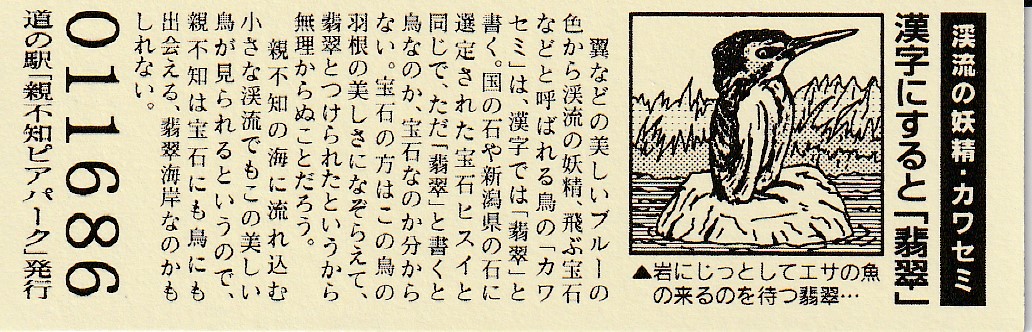 渓流の妖精・カワセミ
漢字にすると「翡翠」
▲岩にじっとしてエサの魚
の来るのを待つ翡翠…
翼などの美しいブルーの
色から渓流の妖精、飛ぶ宝石
などと呼ばれる鳥の「カワ
セミ」は、漢字では「翡翠」と
書く。国の石や新潟県の石に
選定された宝石ヒスイと
同じで、ただ「翡翠」と書くと
鳥なのか、宝石なのか分から
ない。宝石の方はこの鳥の
羽根の美しさになぞらえて、
翡翠とつけられたというから
無理からぬことだろう。
親不知の海に流れ込む
小さな渓流でもこの美しい
鳥が見られるというので、
親不知は宝石にも鳥にも
出会える、翡翠海岸なのかも
しれない。
011686
道の駅「親不知ピアパーク」発行